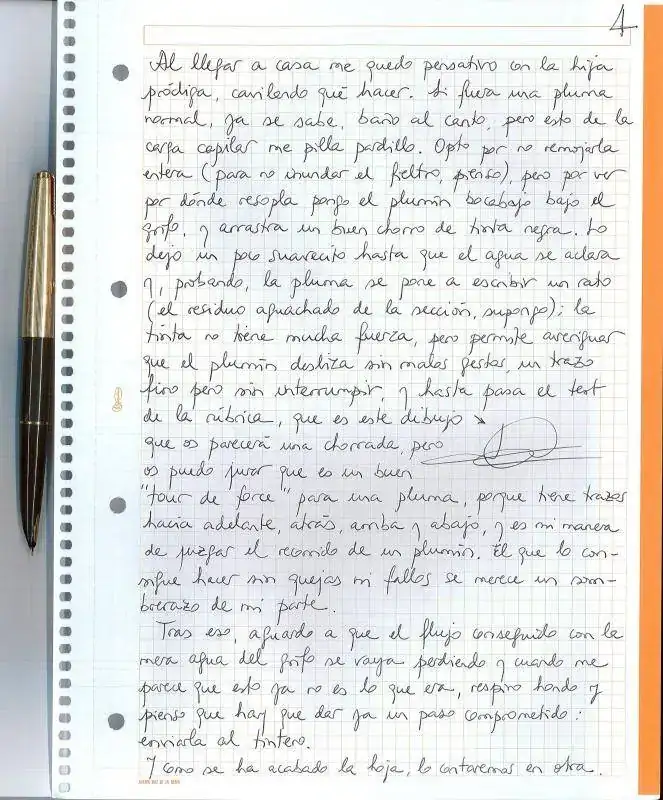 4
Al llegar a casa me quedo pensativo con la hija
pródiga, cavilando qué hacer. Si fuera una pluma
normal, ya se sabe, baño al canto, pero esto de la
carga capilar me pilla pardillo. Opto por no remojarla
entera (para no inundar el fieltro, pienso), pero por ver
por dónde resopla pongo el plumín bocabajo bajo el
grifo, y arrastra un buen chorro de tinta negra. Lo
dejo un poco suavecito hasta que el agua se aclara
y, probando, la pluma se pone a escribir un rato
(el residuo aguachado de la sección, supongo); la
tinta no tiene mucha fuerza, pero permite averiguar
que el plumín desliza sin malos gestos, un trazo
fino pero sin interrumpir, y hasta pasa el test
de la rúbrica, que es este dibujo
que os parecerá una chorrada, pero
os puedo jurar que es un buen
"tour de force" para una pluma, porque tiene trazos
hacia adelante, atrás, arriba y abajo, y es mi manera
de juzgar el recorrido de un plumín. El que lo con-
sigue hacer sin quejas ni fallos se merece un som-
brerazo de mi parte.
Tras eso, aguardo a que el flujo conseguido con la
mera agua del grifo se vaya perdiendo y cuando me
parece que esto ya no es lo que era, respiro hondo y
pienso que hay que dar ya un paso comprometido:
enviarla al tintero.
Y como se ha acabado la hoja, lo contaremos en otra.